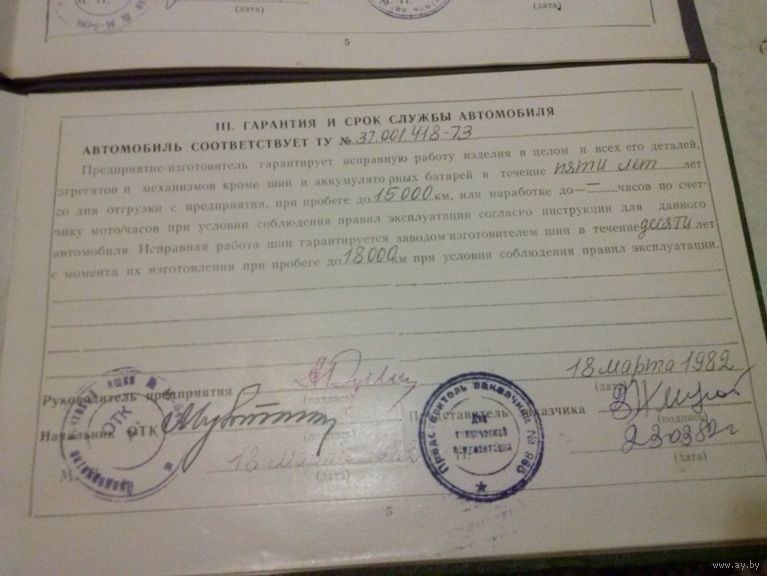 (дата)
(дата)
5
III. ГАРАНТИЯ И СРОК СЛУЖБЫ АВТОМОБИЛЯ
АВТОМОБИЛЬ СООТВЕТСТВУЕТ ТУ № 37.001.418-73
Предприятие-изготовитель гарантирует исправную работу изделия в целом и всех его деталей,
агрегатов и механизмов кроме шин и аккумуляторных батарей в течение пяти лет лет
со дня отгрузки с предприятия, при пробеге до 15000 км, или наработке до — часов по счет-
чику мото/часов при условии соблюдения правил эксплуатации согласно инструкции для данного
автомобиля. Исправная работа шин гарантируется заводом-изготовителем шин в течение десяти лет
с момента их изготовления при пробеге до 18000 км при условии соблюдения правил эксплуатации.
18 марта 1982
Руководитель предприятия
(подпись)
(дата)
Начальник ОТК
(подпись)
Представитель заказчика
(подпись)
18 марта 1982
230382г
М.
П.
(дата)
(дата)
ОТК
Представитель заказчика № 965
Для технической документации
5
www.ay.by